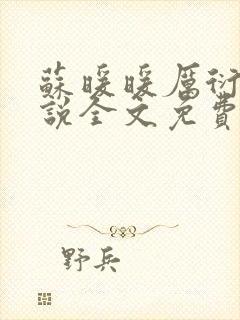 蘇暖暖厲衍
說全文免費
野兵